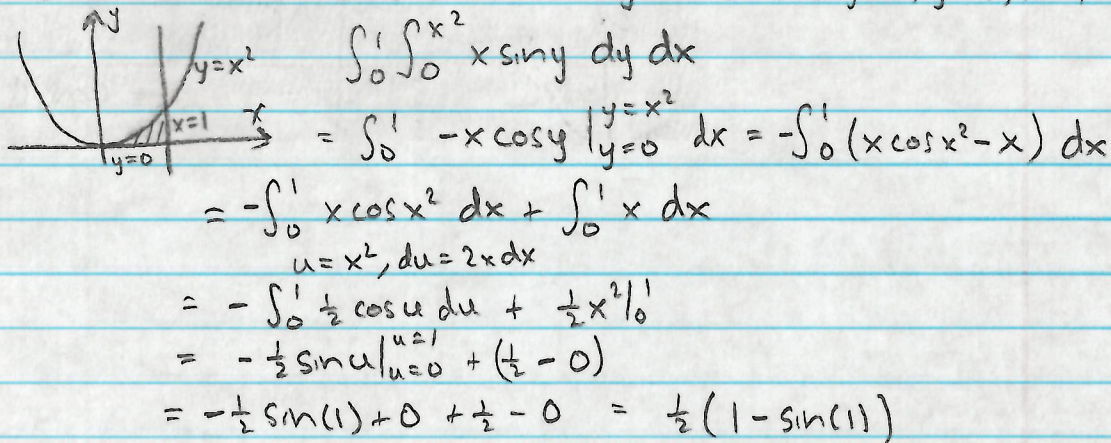 y
y=x²
x
x=1
y=0
∫₀¹ ∫₀^(x²) x siny dy dx
= ∫₀¹ -x cosy |_(y=0)^(y=x²) dx = -∫₀¹ (x cosx² - x) dx
= -∫₀¹ x cosx² dx + ∫₀¹ x dx
u = x², du = 2x dx
= - ∫₀¹ ½ cosu du + ½x²|₀¹
= - ½ sinu|_(u=0)^(u=1) + (½ - 0)
= -½ sin(1) + 0 + ½ - 0 = ½ (1 - sin(1))